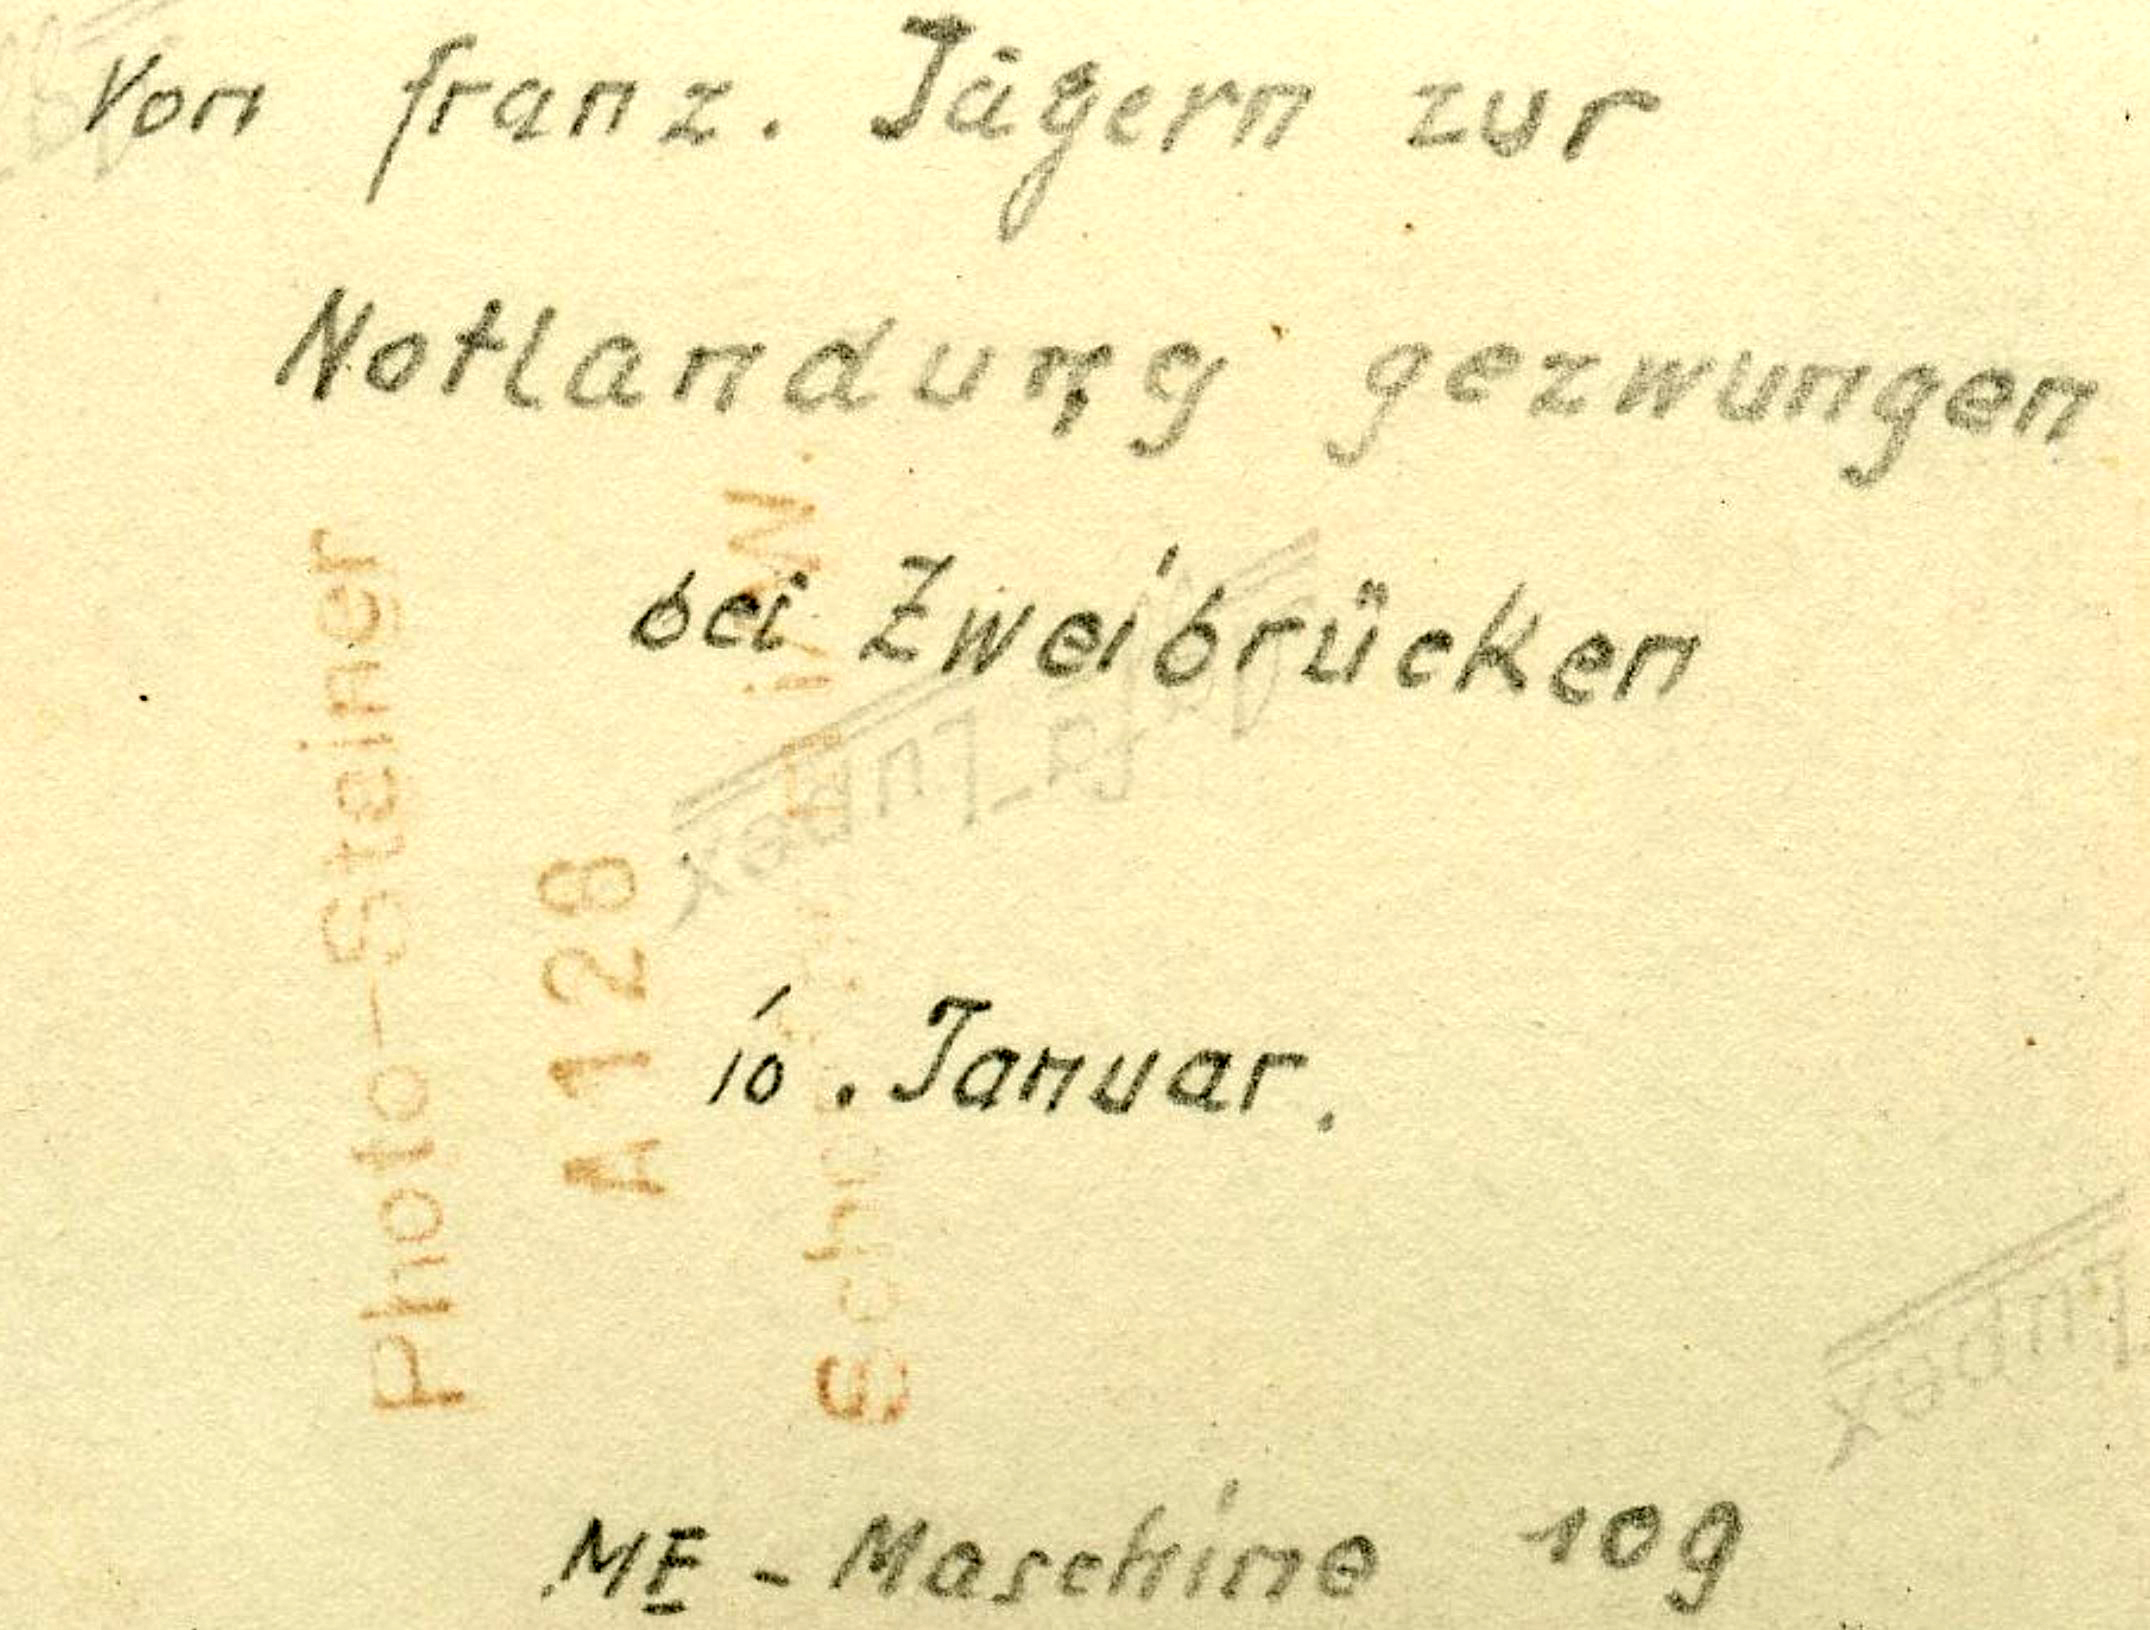 Von franz. Jägern zur
Notlandung gezwungen
bei Zweibrücken
10. Januar.
ME - Maschine 109
Photo-Steiner
A128